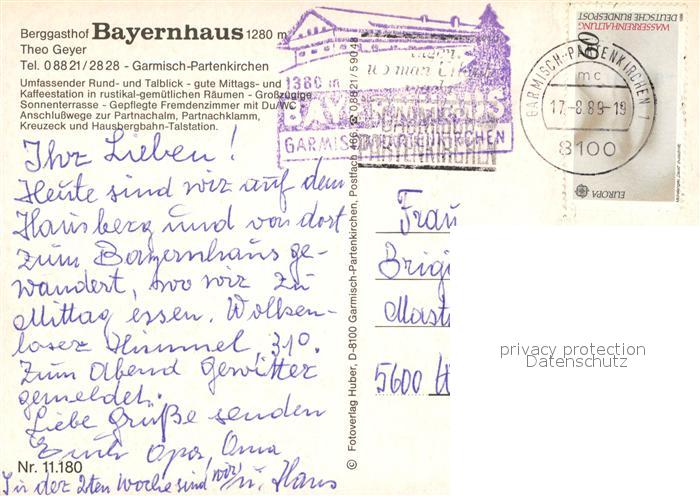 Berggasthof Bayernhaus 1280 m
Theo Geyer
Tel. 0 88 21 / 28 28 - Garmisch-Partenkirchen
Umfassender Rund- und Talblick - gute Mittags- und
Kaffeestation in rustikal-gemütlichen Räumen - Großzügige
Sonnenterrasse - Gepflegte Fremdenzimmer mit Du/WC
Anschlußwege zur Partnachalm, Partnachklamm,
Kreuzeck und Hausbergbahn-Talstation.
Ihr Lieben!
Heute sind wir auf dem
Hausberg und von dort
zum Bayernhaus ge-
wandert, wo wir zu
Mittag essen. Wolken-
loser Himmel 31°.
Zum Abend Gewitter
gemeldet.
Liebe Grüße senden
Euch Opa, Oma
u. Hans
In der 2ten Woche sind wir
Nr. 11.180
© Fotoverlag Huber, D-8100 Garmisch-Partenkirchen, Postfach 466, ☎ 08821/59048
1380 m
BAYERNHAUS
GARMISCH-PARTENKIRCHEN
WASSERREINHALTUNG
DEUTSCHE BUNDESPOST
60
EUROPA
GARMISCH-PARTENKIRCHEN 1
mc
17.-8.89-19
8100
Frau
Brigi
Mast
5600
privacy protection
Datenschutz